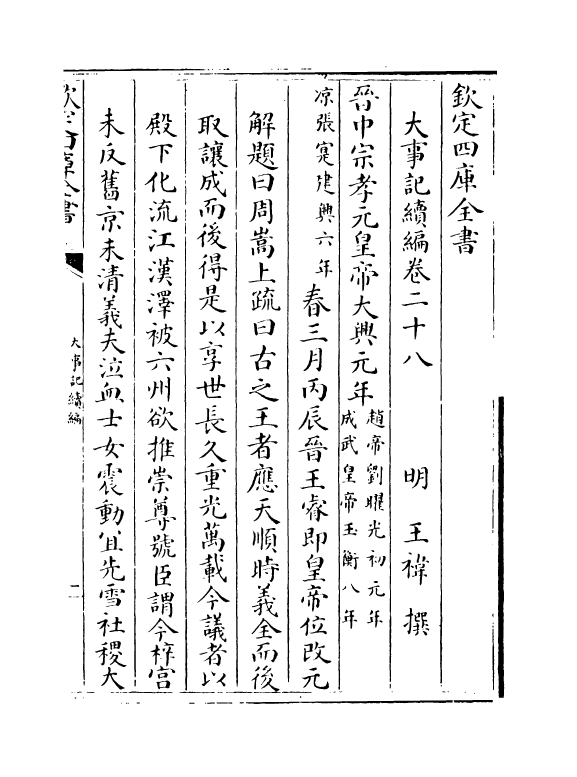 欽定四庫全書
大事記續編卷二十八　明　王禕　撰
晉中宗孝元皇帝大興元年趙帝劉曜光初元年
成武皇帝玉衡八年
凉張寔建興六年春三月丙辰晉王睿即皇帝位改元
解題曰周嵩上疏曰古之王者應天順時義全而後
取讓成而後得是以享世長久重光萬載今議者以
殿下化流江漢澤被六州欲推崇尊號臣謂今梓宮
未反舊京未清義夫泣血士女震動宜先雪社稷大
欽定四庫全書
大事記續編
二